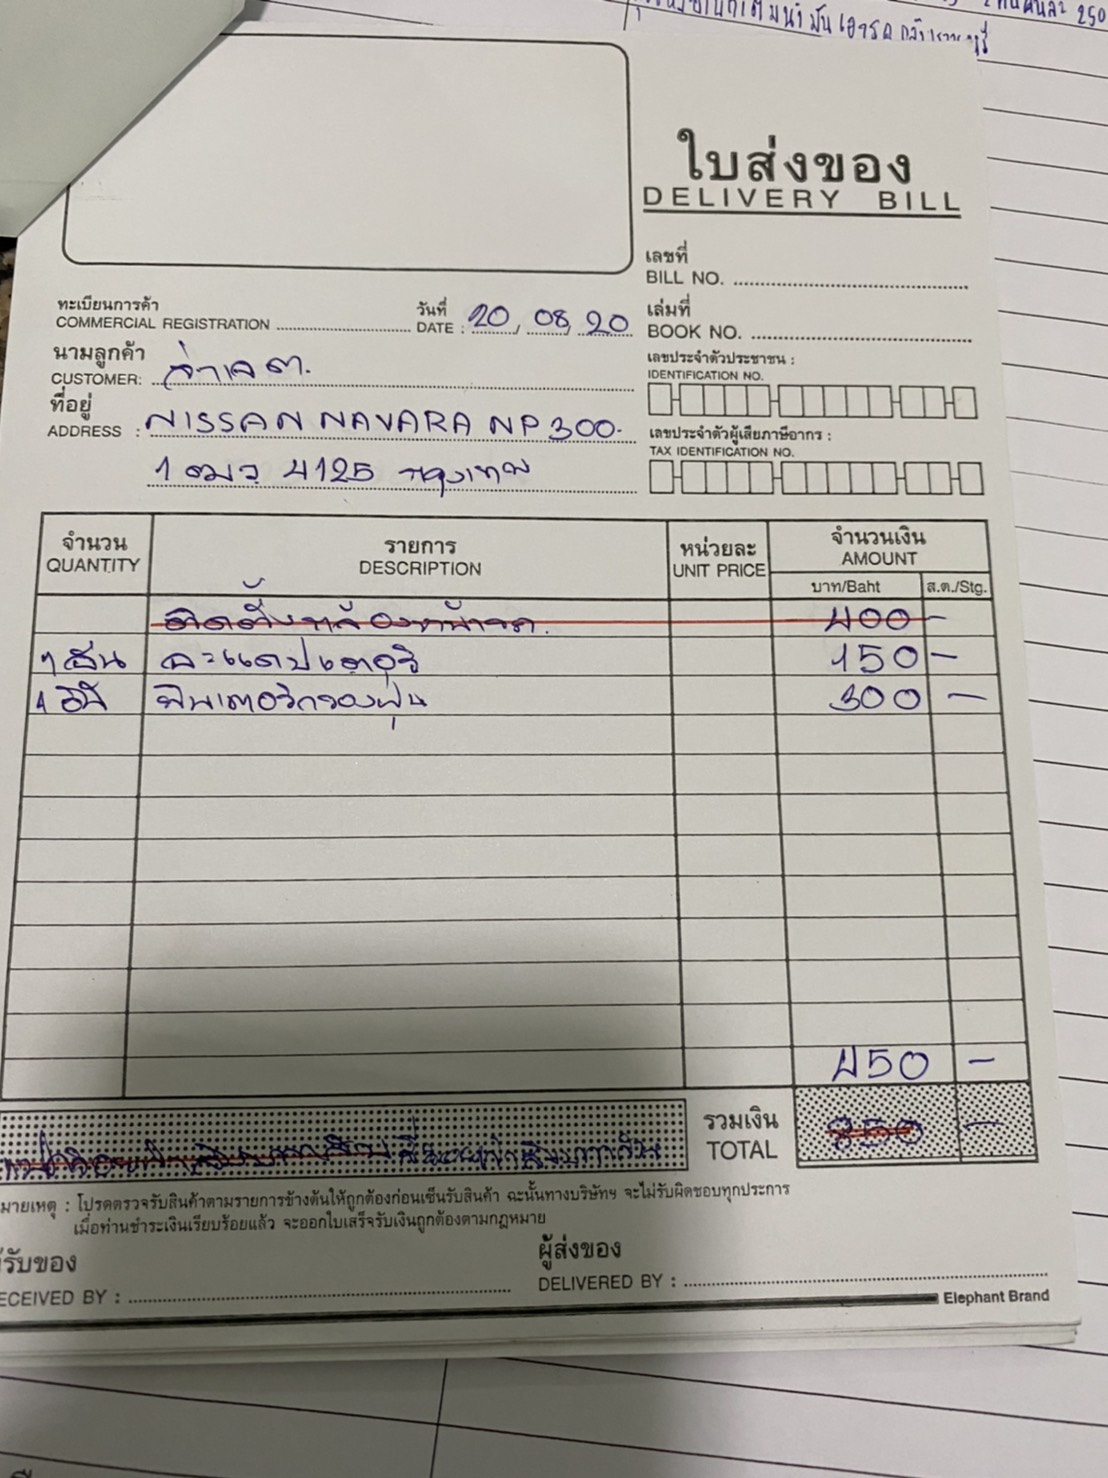 250
ใบส่งของ
DELIVERY BILL
เลขที่
BILL NO.
ทะเบียนการค้า
COMMERCIAL REGISTRATION
วันที่
DATE : 20, 08, 20
เล่มที่
BOOK NO.
นามลูกค้า
CUSTOMER:
เลขประจำตัวประชาชน :
IDENTIFICATION NO.
ที่อยู่
ADDRESS : NISSAN NAVARA NP 300.
เลขประจำตัวผู้เสียภาษีอากร :
TAX IDENTIFICATION NO.
1 ฒว 4125 กรุงเทพ
จำนวน รายการ หน่วยละ จำนวนเงิน
QUANTITY DESCRIPTION UNIT PRICE AMOUNT
บาท/Baht ส.ต./Stg.
ติดตั้งกล้องหน้ารถ. 400 -
1 อัน อะแดปเตอร์ 150 -
1 ฟิลเตอร์กรองฝุ่น 300 -
450 -
รวมเงิน
TOTAL 850 -
มายเหตุ : โปรดตรวจรับสินค้าตามรายการข้างต้นให้ถูกต้องก่อนเซ็นรับสินค้า ฉะนั้นทางบริษัทฯ จะไม่รับผิดชอบทุกประการ
เมื่อท่านชำระเงินเรียบร้อยแล้ว จะออกใบเสร็จรับเงินถูกต้องตามกฎหมาย
รับของ
ECEIVED BY :
ผู้ส่งของ
DELIVERED BY :
Elephant Brand